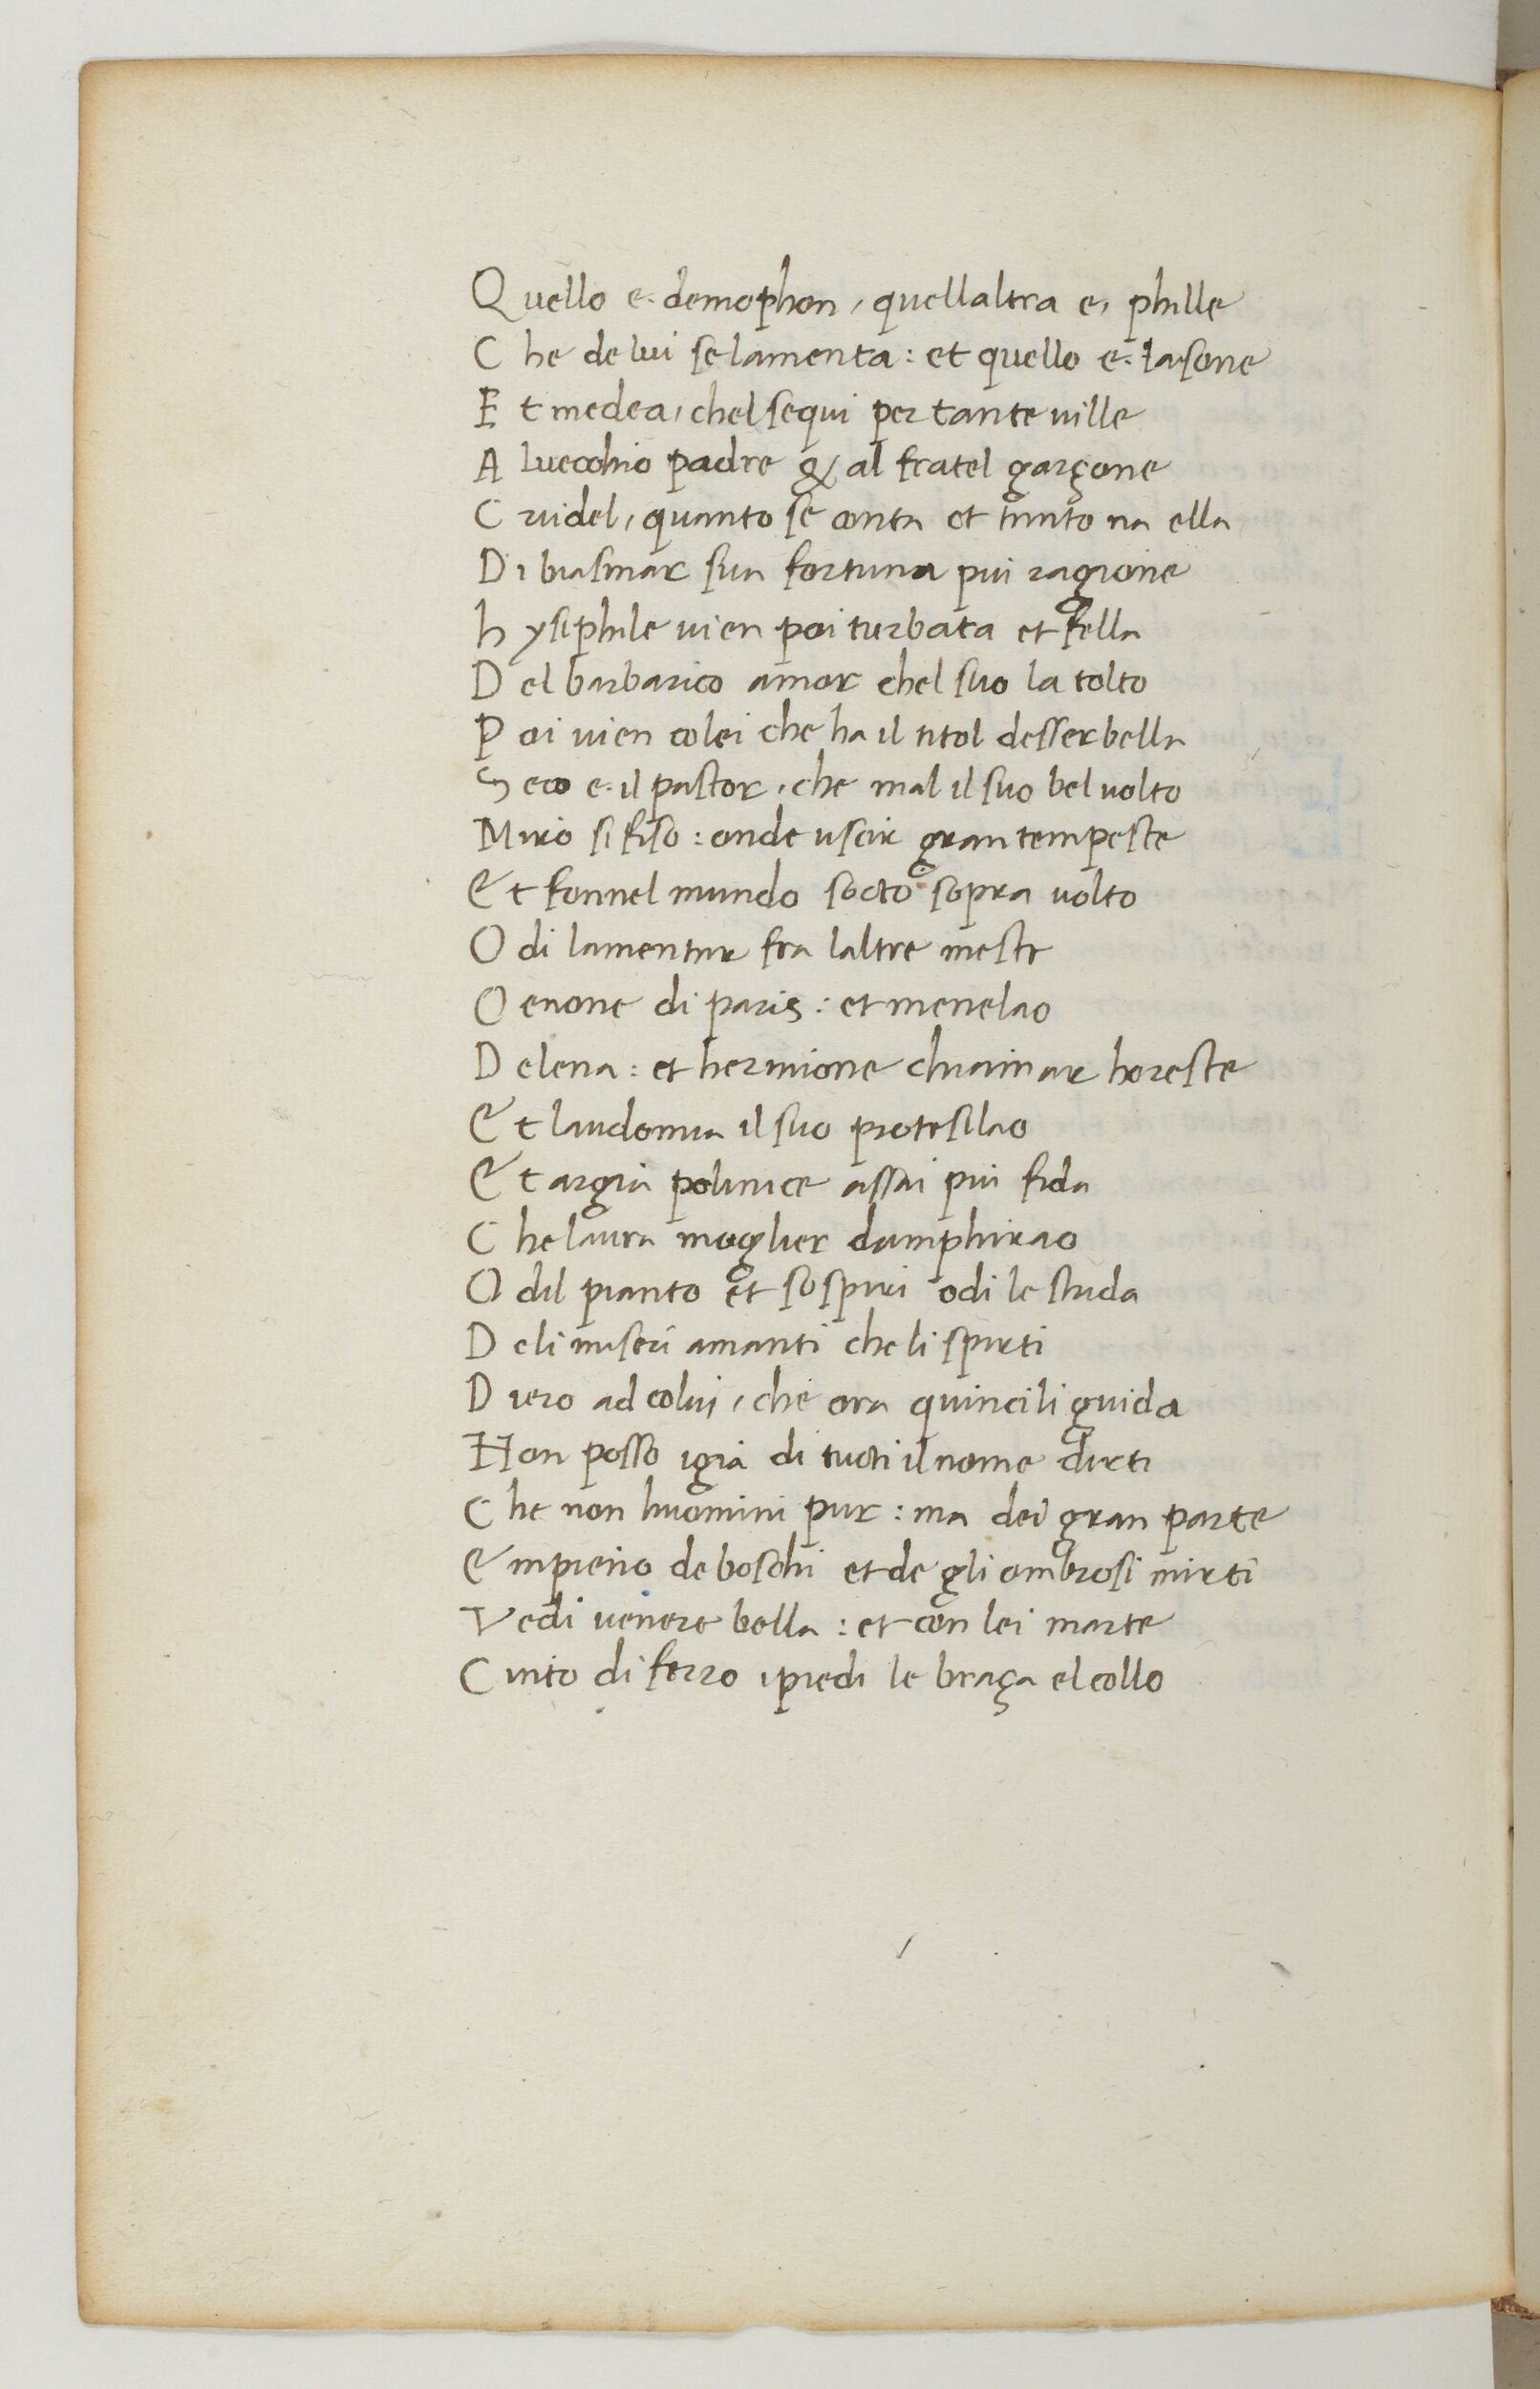 Quello e· demophon, quellaltra e, phille
Che de lui se lamenta: et quello e· Iasone
Et medea, chel sequi per tante uille
Al uecchio padre & al fratel garçone
Crudel, quanto se conta et tanto na ella
Di biasmar sua fortuna piu ragione
hysiphile uien poi turbata et fella
Del barbarico amor chel suo la tolto
Poi uien colei che ha il titol desser bella
Seco e· il pastor, che mal il suo bel uolto
Miro si fiso: onde uscir gran tempeste
Et fonnel mundo socto sopra uolto
Odi lamentar fra laltre meste
Oenone di paris: et menelao
Delena: et hermione chiamar horeste
Et laudomia il suo protesilao
Et argia polinice assai piu fida
Che laura moglier damphirao
Odil pianto et sospiri odi le strida
Deli miseri amanti che li spirti
Diero ad colui, che ora quinci li guida
Non posso igia di tucti il nome dirti
Che non huomini pur: ma dei gran parte
Empieno de boschi et de gli ombrosi mirti
Vedi uenere bella: et con lei marte
Cinto di ferro i piedi le braça el collo